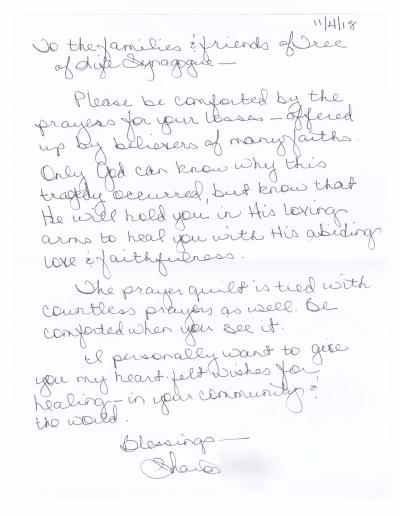 11/4/18
To the families & friends of Tree
of Life Synagogue—
Please be comforted by the
prayers for your losses — offered
up by believers of many faiths.
Only God can know why this
tragedy occurred, but know that
He will hold you in His loving
arms to heal you with His abiding
love & faithfulness.
The prayer quilt is tied with
countless prayers as well. Be
comforted when you see it.
I personally want to give
you my heart felt wishes for
healing — in your community &
the world.
Blessings —